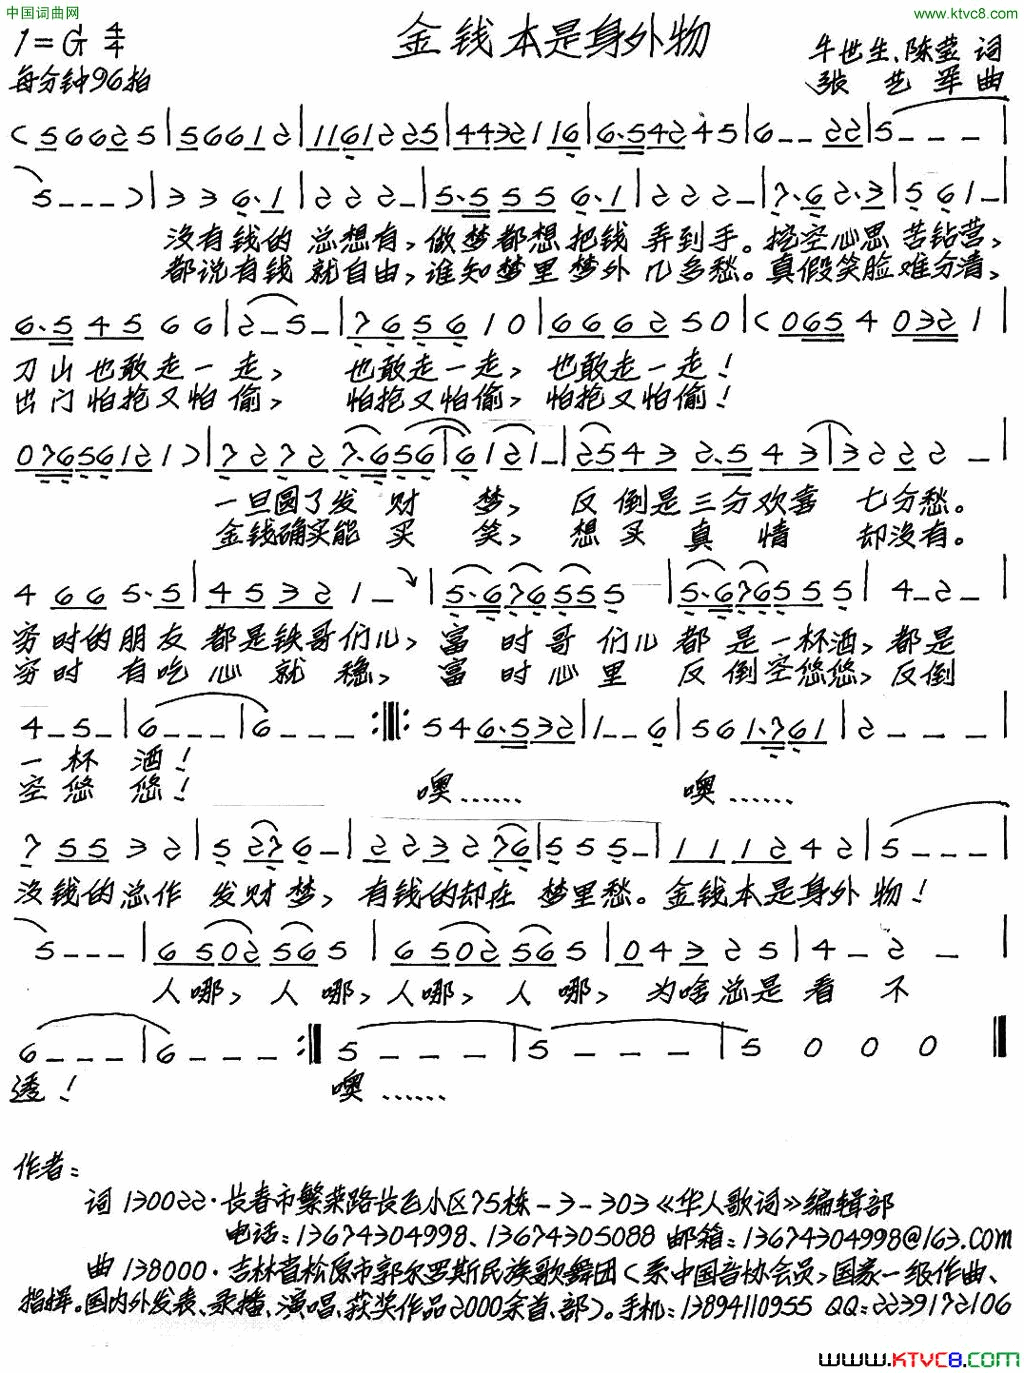 中国词曲网
www.ktvc8.com
1=G 4/4
金钱本是身外物
牛世生、陈莹 词
每分钟96拍
张艺军 曲
(56625|56612|11612225|4432116|6.54245|6--22|5---|
5---)|336.1|222-|5.5556.1|222-|7.62.3|561-|
没有钱的总想有,做梦都想把钱弄到手。挖空心思苦钻营,
都说有钱就自由,谁知梦里梦外几多愁。真假笑脸难分清,
6.54566|2-5-|765610|666250|(06540321|
刀山也敢走一走,也敢走一走,也敢走一走!
出门怕抢又怕偷,怕抢又怕偷,怕抢又怕偷!
07656121)|72727.656|6121-|25432.543|3222-|
一旦圆了发财梦,反倒是三分欢喜七分愁。
金钱确实能买笑,想买真情却没有。
4665.5|45321-|5.676555|5.676555|4-2-|
穷时的朋友都是铁哥们儿,富时哥们儿都是一杯酒,都是
穷时有吃心就稳,富时心里反倒空悠悠,反倒
4-5-|6---|6---:||:546.532|1--6|561.761|2---|
一杯酒!
空悠悠! 噢…… 噢……
75532|5276-|2232276|555-|111242|5---|
没钱的总作发财梦,有钱的却在梦里愁。金钱本是身外物!
5---|6502565|6502565|04325|4-2-|
人哪,人哪,人哪,人哪,为啥总是看不
6---|6---:||5---|5---|5000||
透! 噢……
作者:
词 130022·长春市繁荣路长飞小区75栋-3-303《华人歌词》编辑部
电话:13674304998、13674305088 邮箱:13674304998@163.com
曲 138000·吉林省松原市郭尔罗斯民族歌舞团(系中国音协会员,国家一级作曲、
指挥。国内外发表、录播、演唱、获奖作品2000余首、部)。手机:13894110955 QQ:2239172106
www.KTVC8.com